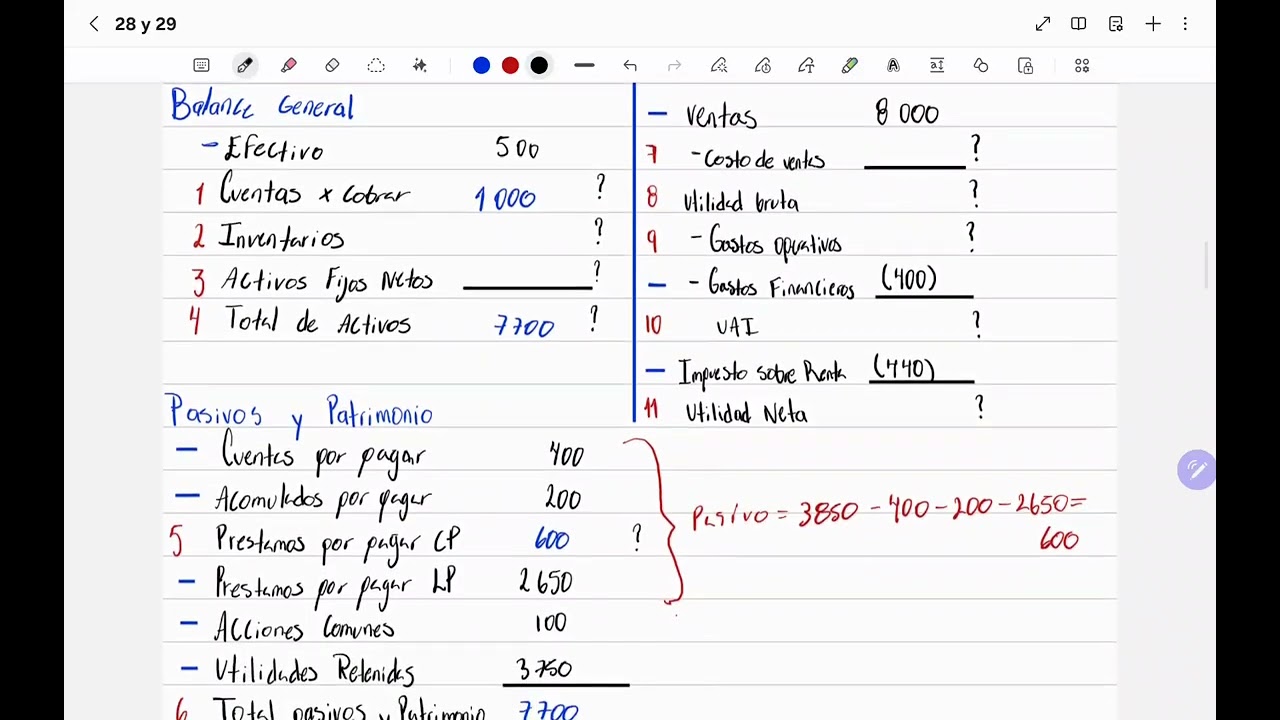 28 y 29
Balance General
- Efectivo 500
1 Cuentas x cobrar 1000 ?
2 Inventarios ?
3 Activos Fijos Netos ?
4 Total de Activos 7700 ?
Pasivos y Patrimonio
- Cuentas por pagar 400
- Acomulados por pagar 200
5 Prestamos por pagar CP 600 ?
- Prestamos por pagar LP 2650
- Acciones Comunes 100
- Utilidades Retenidas 3750
6 Total pasivos y Patrimonio 7700
- Ventas 8 000
7 - Costo de ventas ?
8 Utilidad bruta ?
9 - Gastos operativos ?
- - Gastos Financieros (400)
10 UAI ?
- Impuesto sobre Renta (440)
11 Utilidad Neta ?
Pasivo = 3850 - 400 - 200 - 2650 =
600